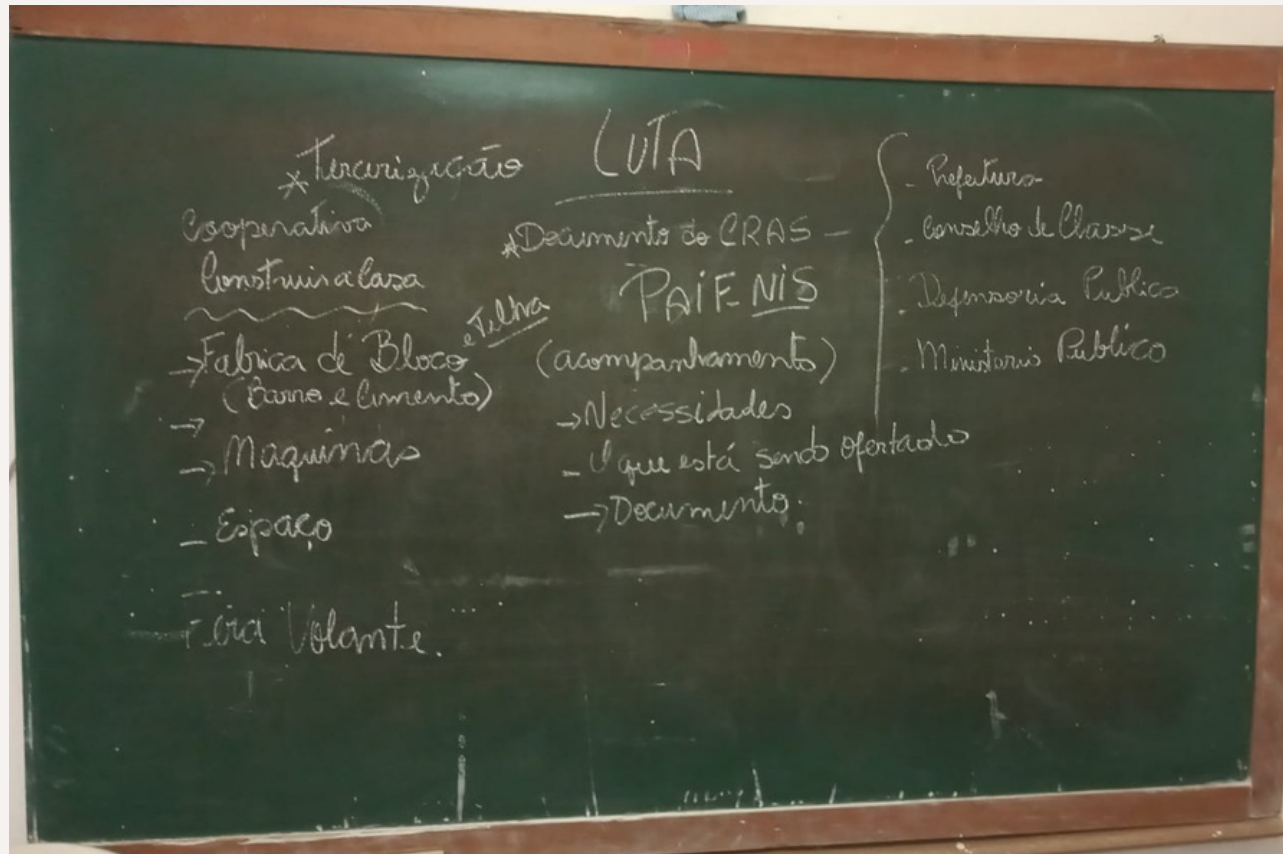 LUTA
* Tercerização
Cooperativa
Construir a Casa
→ Fabrica de Bloco e Telha
(Barro e Cimento)
→
→ Maquinas
- Espaço
Feira Volante.
* Documento do CRAS -
PAIF NIS
(acompanhamento)
→ Necessidades
- O que está sendo ofertado
→ Documento;
- Prefeitura
- Conselho de Classe
- Defensoria Publica
- Ministerio Publico